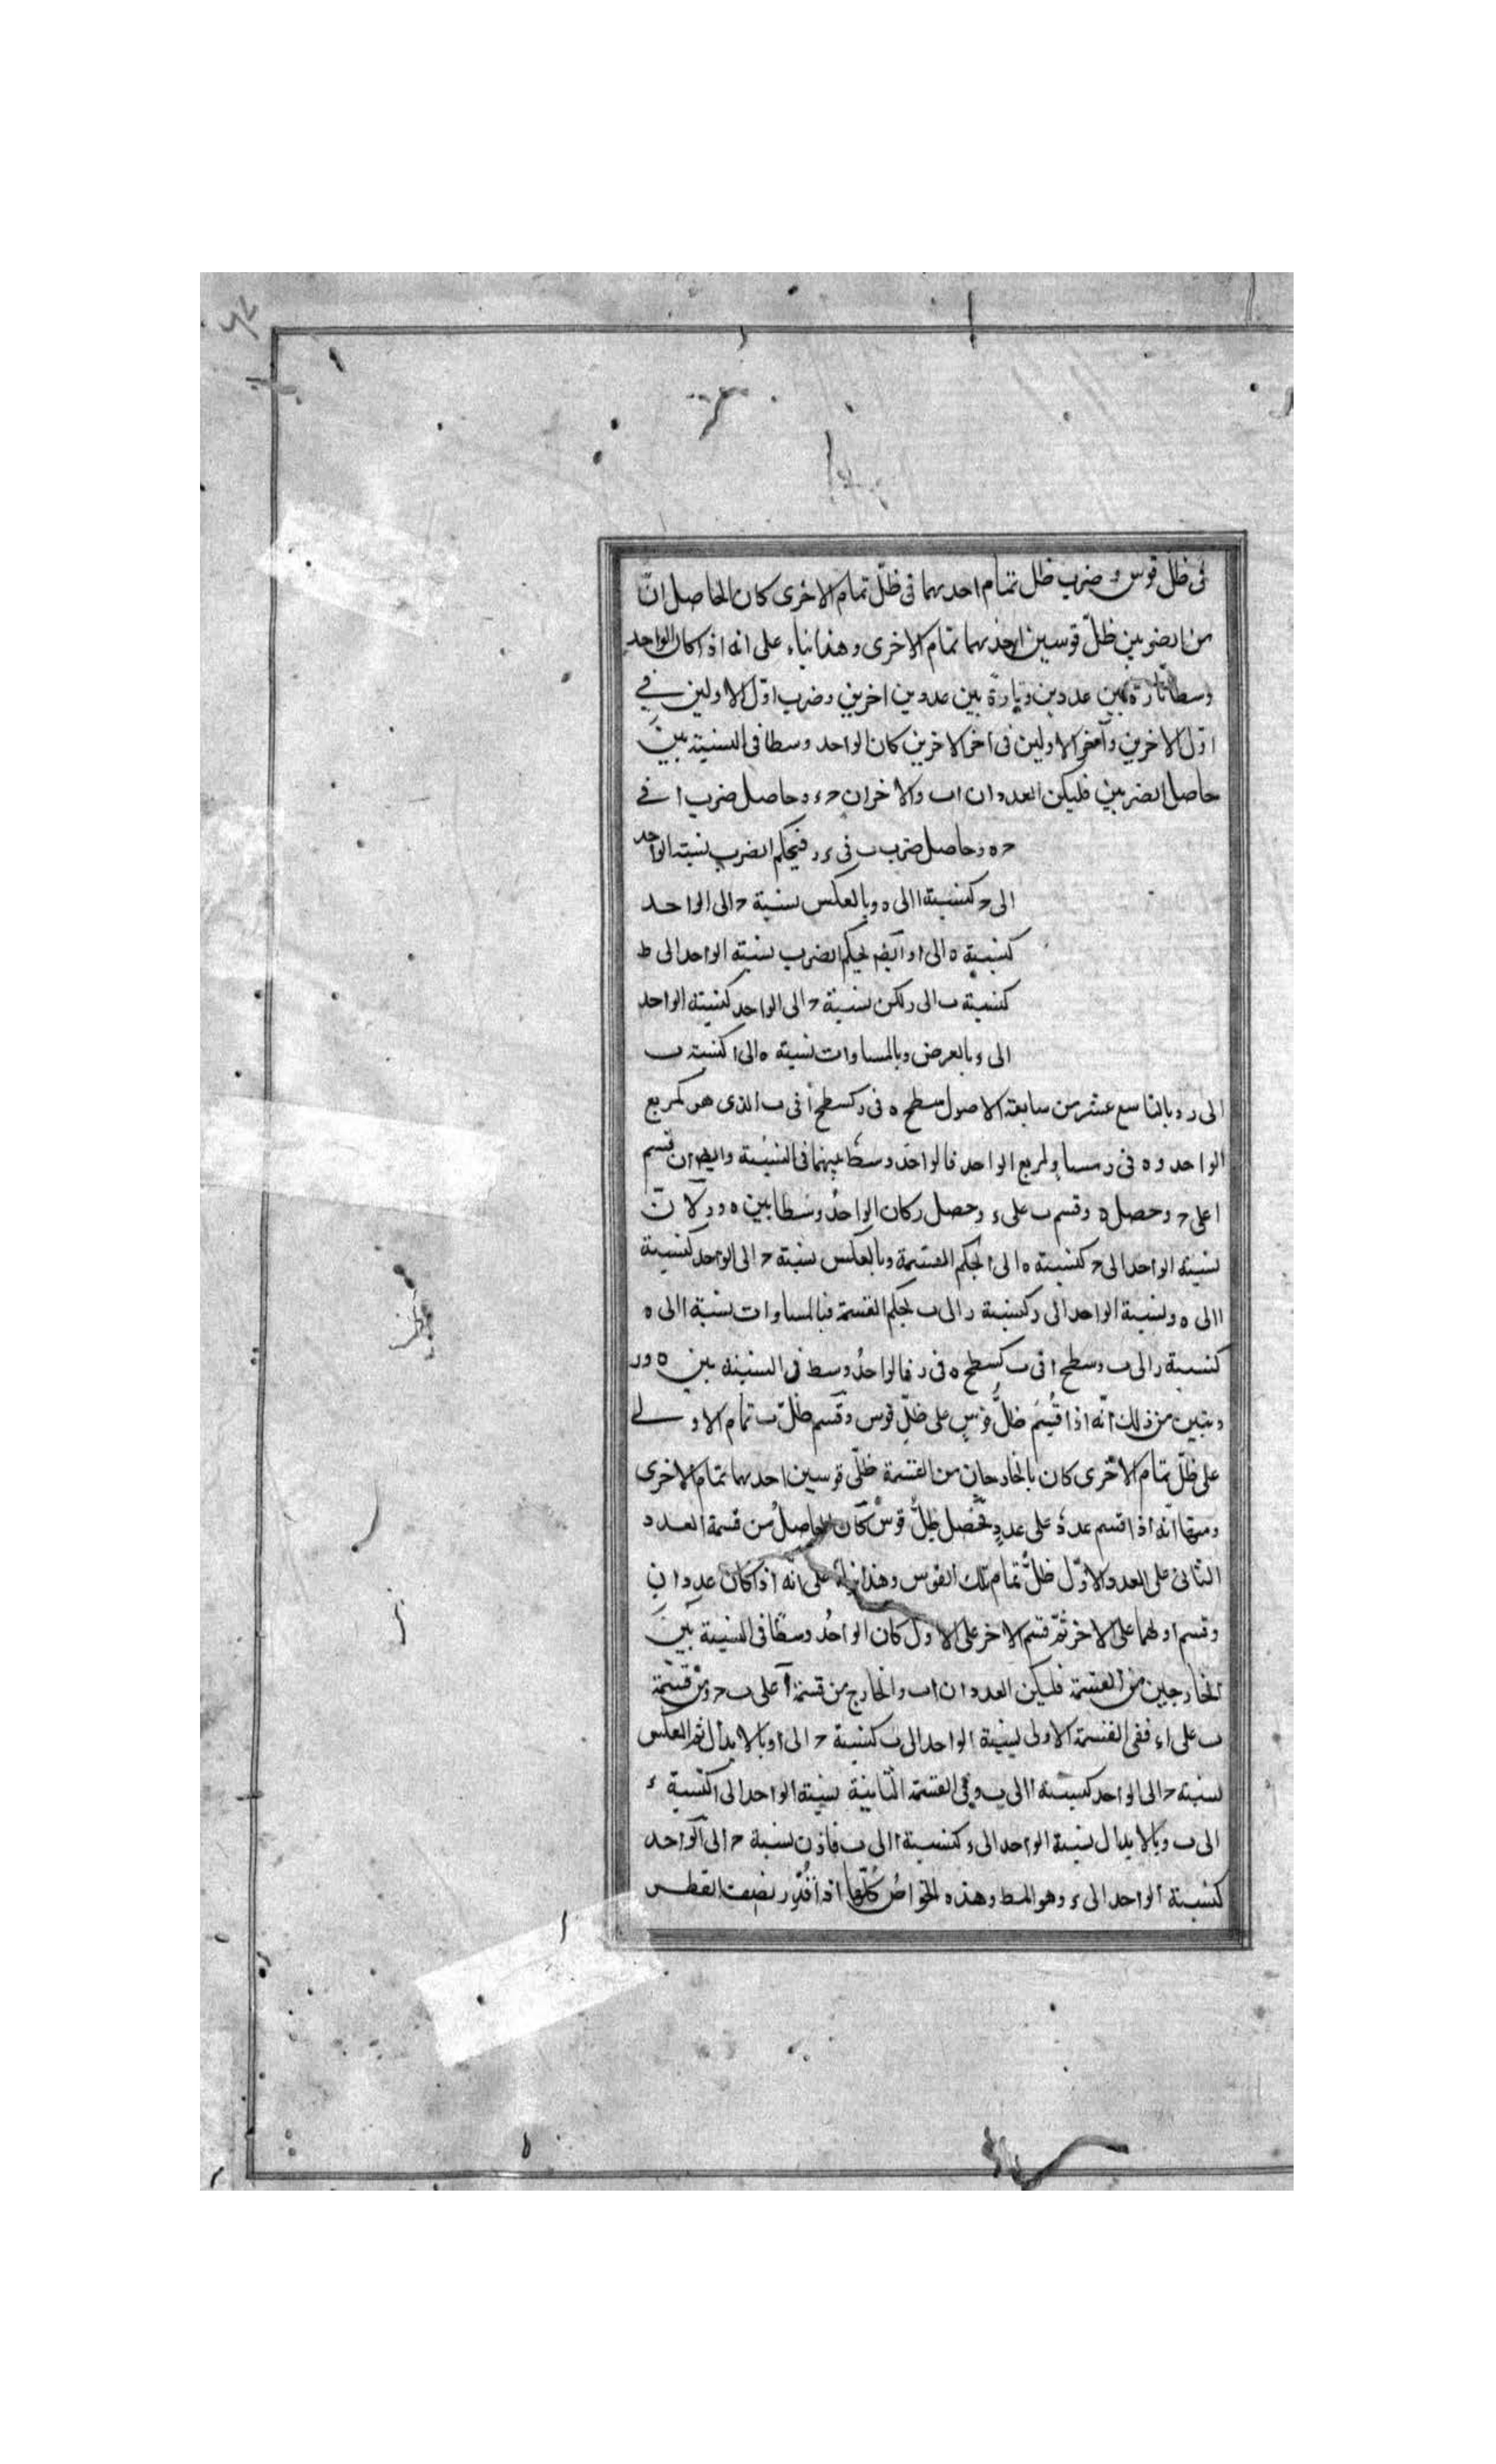 فى ظل قوس و ضرب ظل تمام احديهما فى ظلّ تمام الاخرى كان الحاصل انّ
من الضربين ظلّ قوسين احديهما تمام الاخرى وهذا بناء على انه اذا كان الواحد
وسطا تارة بين عددين وتارة بين عددين اخرين وضرب اوّل الاولين فى
اوّل الاخرين وآخر الاولين فى آخر الاخرين كان الواحد وسطا فى النسبة بين
حاصل الضربين فليكن العددان ا ب والاخران ح ء وحاصل ضرب ا فى
ح ه وحاصل ضرب ب فى ء ر فبحكم الضرب نسبة الواحد
الى ح كنسبة ا الى ه وبالعكس نسبة ح الى الواحد
كنسبة ه الى ا وايضا بحكم الضرب نسبة الواحد الى ط
كنسبة ب الى ر لكن نسبة ح الى الواحد كنسبة الواحد
الى ء وبالعرض وبالمساوات نسبة ه الى ا كنسبة ب
الى ر وبالتاسع عشر من سابعة الاصول مسطح ه فى ر كسطح ا فى ب الذى هو كمربع
الواحد و ه فى ر مساو لمربع الواحد فالواحد وسط بينهما فى النسبة وايضا ان قسم
ا على ح وحصل ه وقسم ب على ء وحصل ر كان الواحد وسطا بين ه و ر لان
نسبة الواحد الى ح كنسبة ه الى ا بحكم القسمة وبالعكس نسبة ح الى الواحد كنسبة
ا الى ه ونسبة الواحد الى ر كنسبة ر الى ب بحكم القسمة فبالمساوات نسبة ا الى ه
كنسبة ر الى ب وسطح ا فى ب كسطح ه فى ر فالواحد وسط فى النسبة بين ه و ر
وتبين من ذلك انّه اذا قُسِمَ ظلّ قوسٍ على ظلّ قوس وقسم ظلّ تمام الاولى
على ظلّ تمام الاخرى كان بالخارجان من القسمة ظلّى قوسين احديهما تمام الاخرى
ومنها انّه اذا قسم عددٌ على عددٍ فحصل ظلُّ قوس كان الحاصل من قسمة العدد
الثانى على العدد الاوّل ظلُّ تمام تلك القوس وهذا بناءً على انّه اذا كان عددان
وقسم اولهما على الاخر ثمّ قسم الاخر على الاول كان الواحدُ وسطًا فى النسبة بين
الخارجين من القسمة فليكن العددان ا ب والخارج من قسمة ا على ب ح ومن قسمة
ب على ا ء ففى القسمة الاولى نسبة الواحد الى ب كنسبة ح الى ا وبالابدال ثم العكس
نسبة ح الى الواحد كنسبة ا الى ب وفى القسمة الثانية نسبة الواحد الى ا كنسبة ء
الى ب وبالابدال نسبة الواحد الى ء كنسبة ا الى ب فاذن نسبة ح الى الواحد
كنسبة الواحد الى ء وهو المط وهذه الخواصُ كُلّها اذا قُدّر نصف القطر